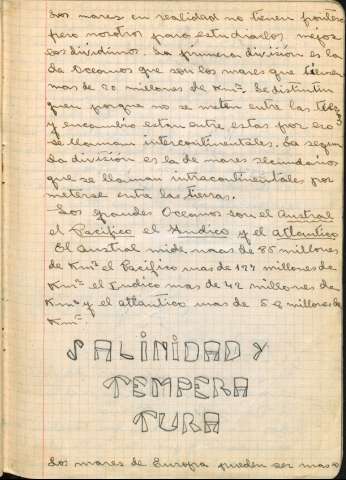 Los mares en realidad no tienen fronteras
pero nosotros para estudiarlos mejor
los dividimos. La primera división es la
de Oceanos que son los mares que tienen
mas de 20 millones de Km². Se distinguen
porque no se meten entre las
y encambio estan entre estas por eso
se llaman intercontinentales. La segun
da división es la de mares secundarios
que se llaman intracontinentales por
meterse entre las tierras.
Los grandes Oceanos son el Austral
el Pacífico el Indico y el atlantico
El Austral mide mas de 85 millones
de Km² el Pacífico mas de 137 millones de
Km² el Indico mas de 42 millones de
Km² y el atlantico mas de 58 millones de
Km²
SALINIDAD Y
TEMPERA
TURA
Los mares de Europa pueden ser mas o